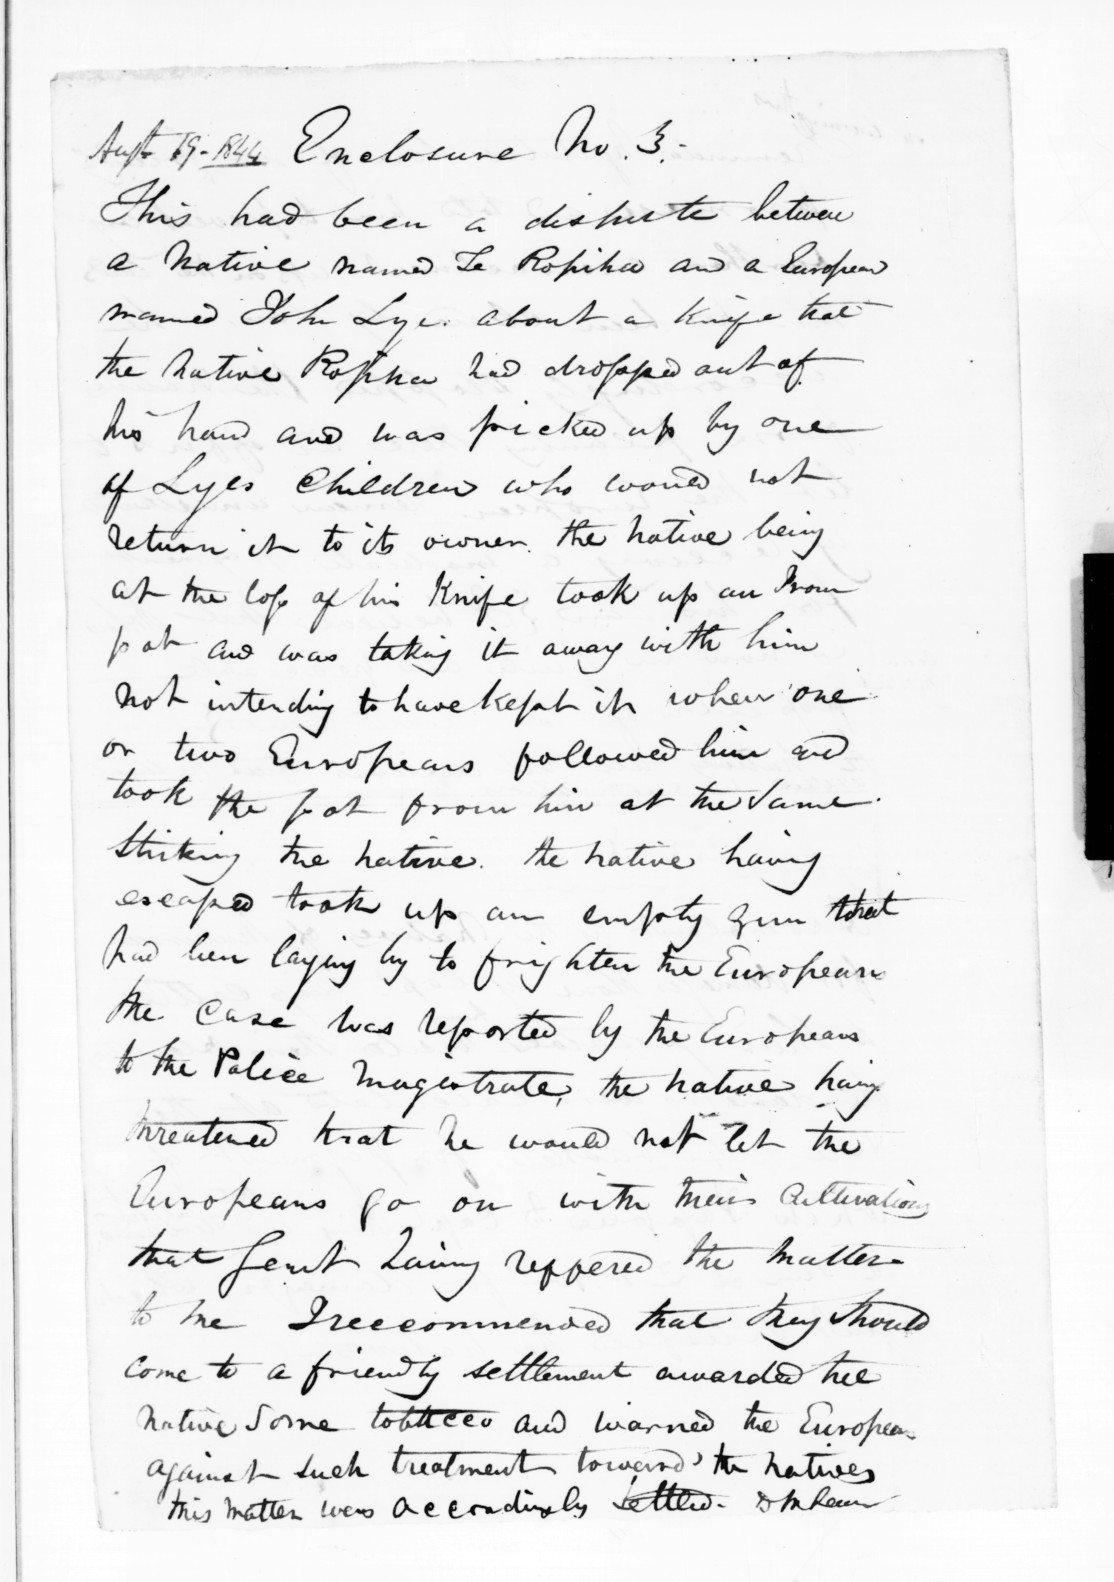 Augt 19 - 1844 Enclosure No. 3.
This had been a dispute between
a Native named Te Ropiha and a European
named John Lye. about a Knife that
the Native Ropiha had dropped out of
his hand and was picked up by one
of Lyes Children who would not
return it to its owner. the Native being
at the loss of his Knife took up an Iron
pot and was taking it away with him
not intending to have kept it when one
or two Europeans followed him and
took the pot from him at the Same
Striking the native. the native having
escaped took up an empty gun that
had been laying by to frighten the Europeans
the Case was reported by the Europeans
to the Police Magistrate, the native having
threatened that he would not let the
Europeans go on with their Cultivations
that Gent having reffered the Matter
to me I reccommended that they Should
Come to a friendly settlement awarded the
native Some tobacco and warned the European
against such treatment toward the natives
this Matter was accordingly Settled.